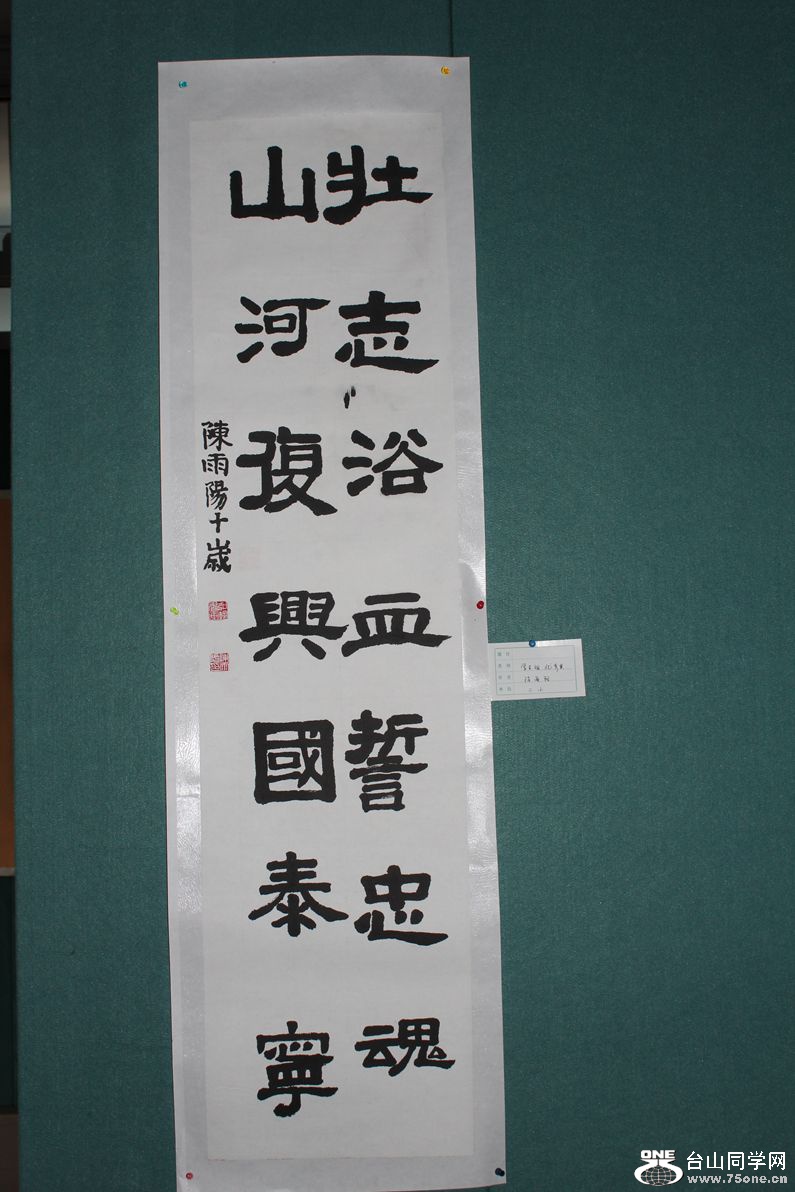 壯志浴血誓忠魂
山河復興國泰寧
陳雨陽十歲
ONE 台山同学网
www.75one.cn